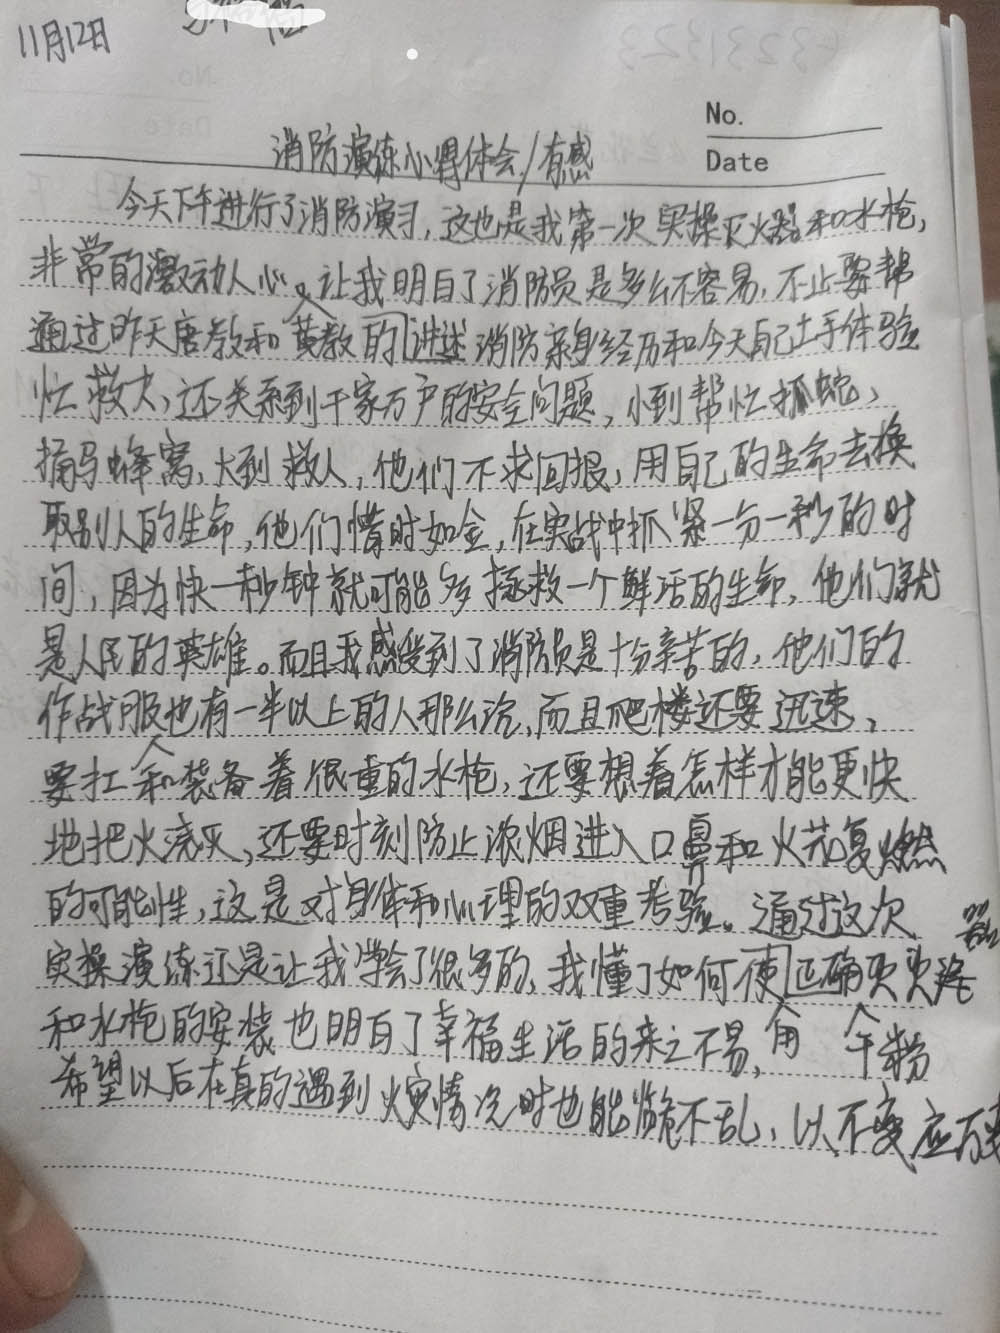 11月12日
No.
Date
消防演练心得体会/有感
今天下午进行了消防演习,这也是我第一次实操灭火器和水枪,
非常的激动人心。让我明白了消防员是多么不容易,不止要帮
通过昨天唐教和黄教的讲述消防亲身经历和今天自己上手体验
忙救火,还关系到千家万户的安全问题,小到帮忙抓蛇、
捅马蜂窝,大到救人,他们不求回报,用自己的生命去换
取别人的生命,他们惜时如金,在实战中抓紧一分一秒的时
间,因为快一秒钟就可能多拯救一个鲜活的生命,他们就
是人民的英雄。而且我感受到了消防员是十分辛苦的,他们的
作战服也有一半以上的人那么沉,而且爬楼还要迅速,
要扛人和装备着很重的水枪,还要想着怎样才能更快
地把火浇灭,还要时刻防止浓烟进入口鼻和火花复燃
的可能性,这是对身体和心理的双重考验。通过这次
实操演练还是让我学会了很多的,我懂了如何使正确灭火器
和水枪的安装也明白了幸福生活的来之不易,用 干粉
希望以后在真的遇到火灾情况时也能临危不乱,以不变应万变